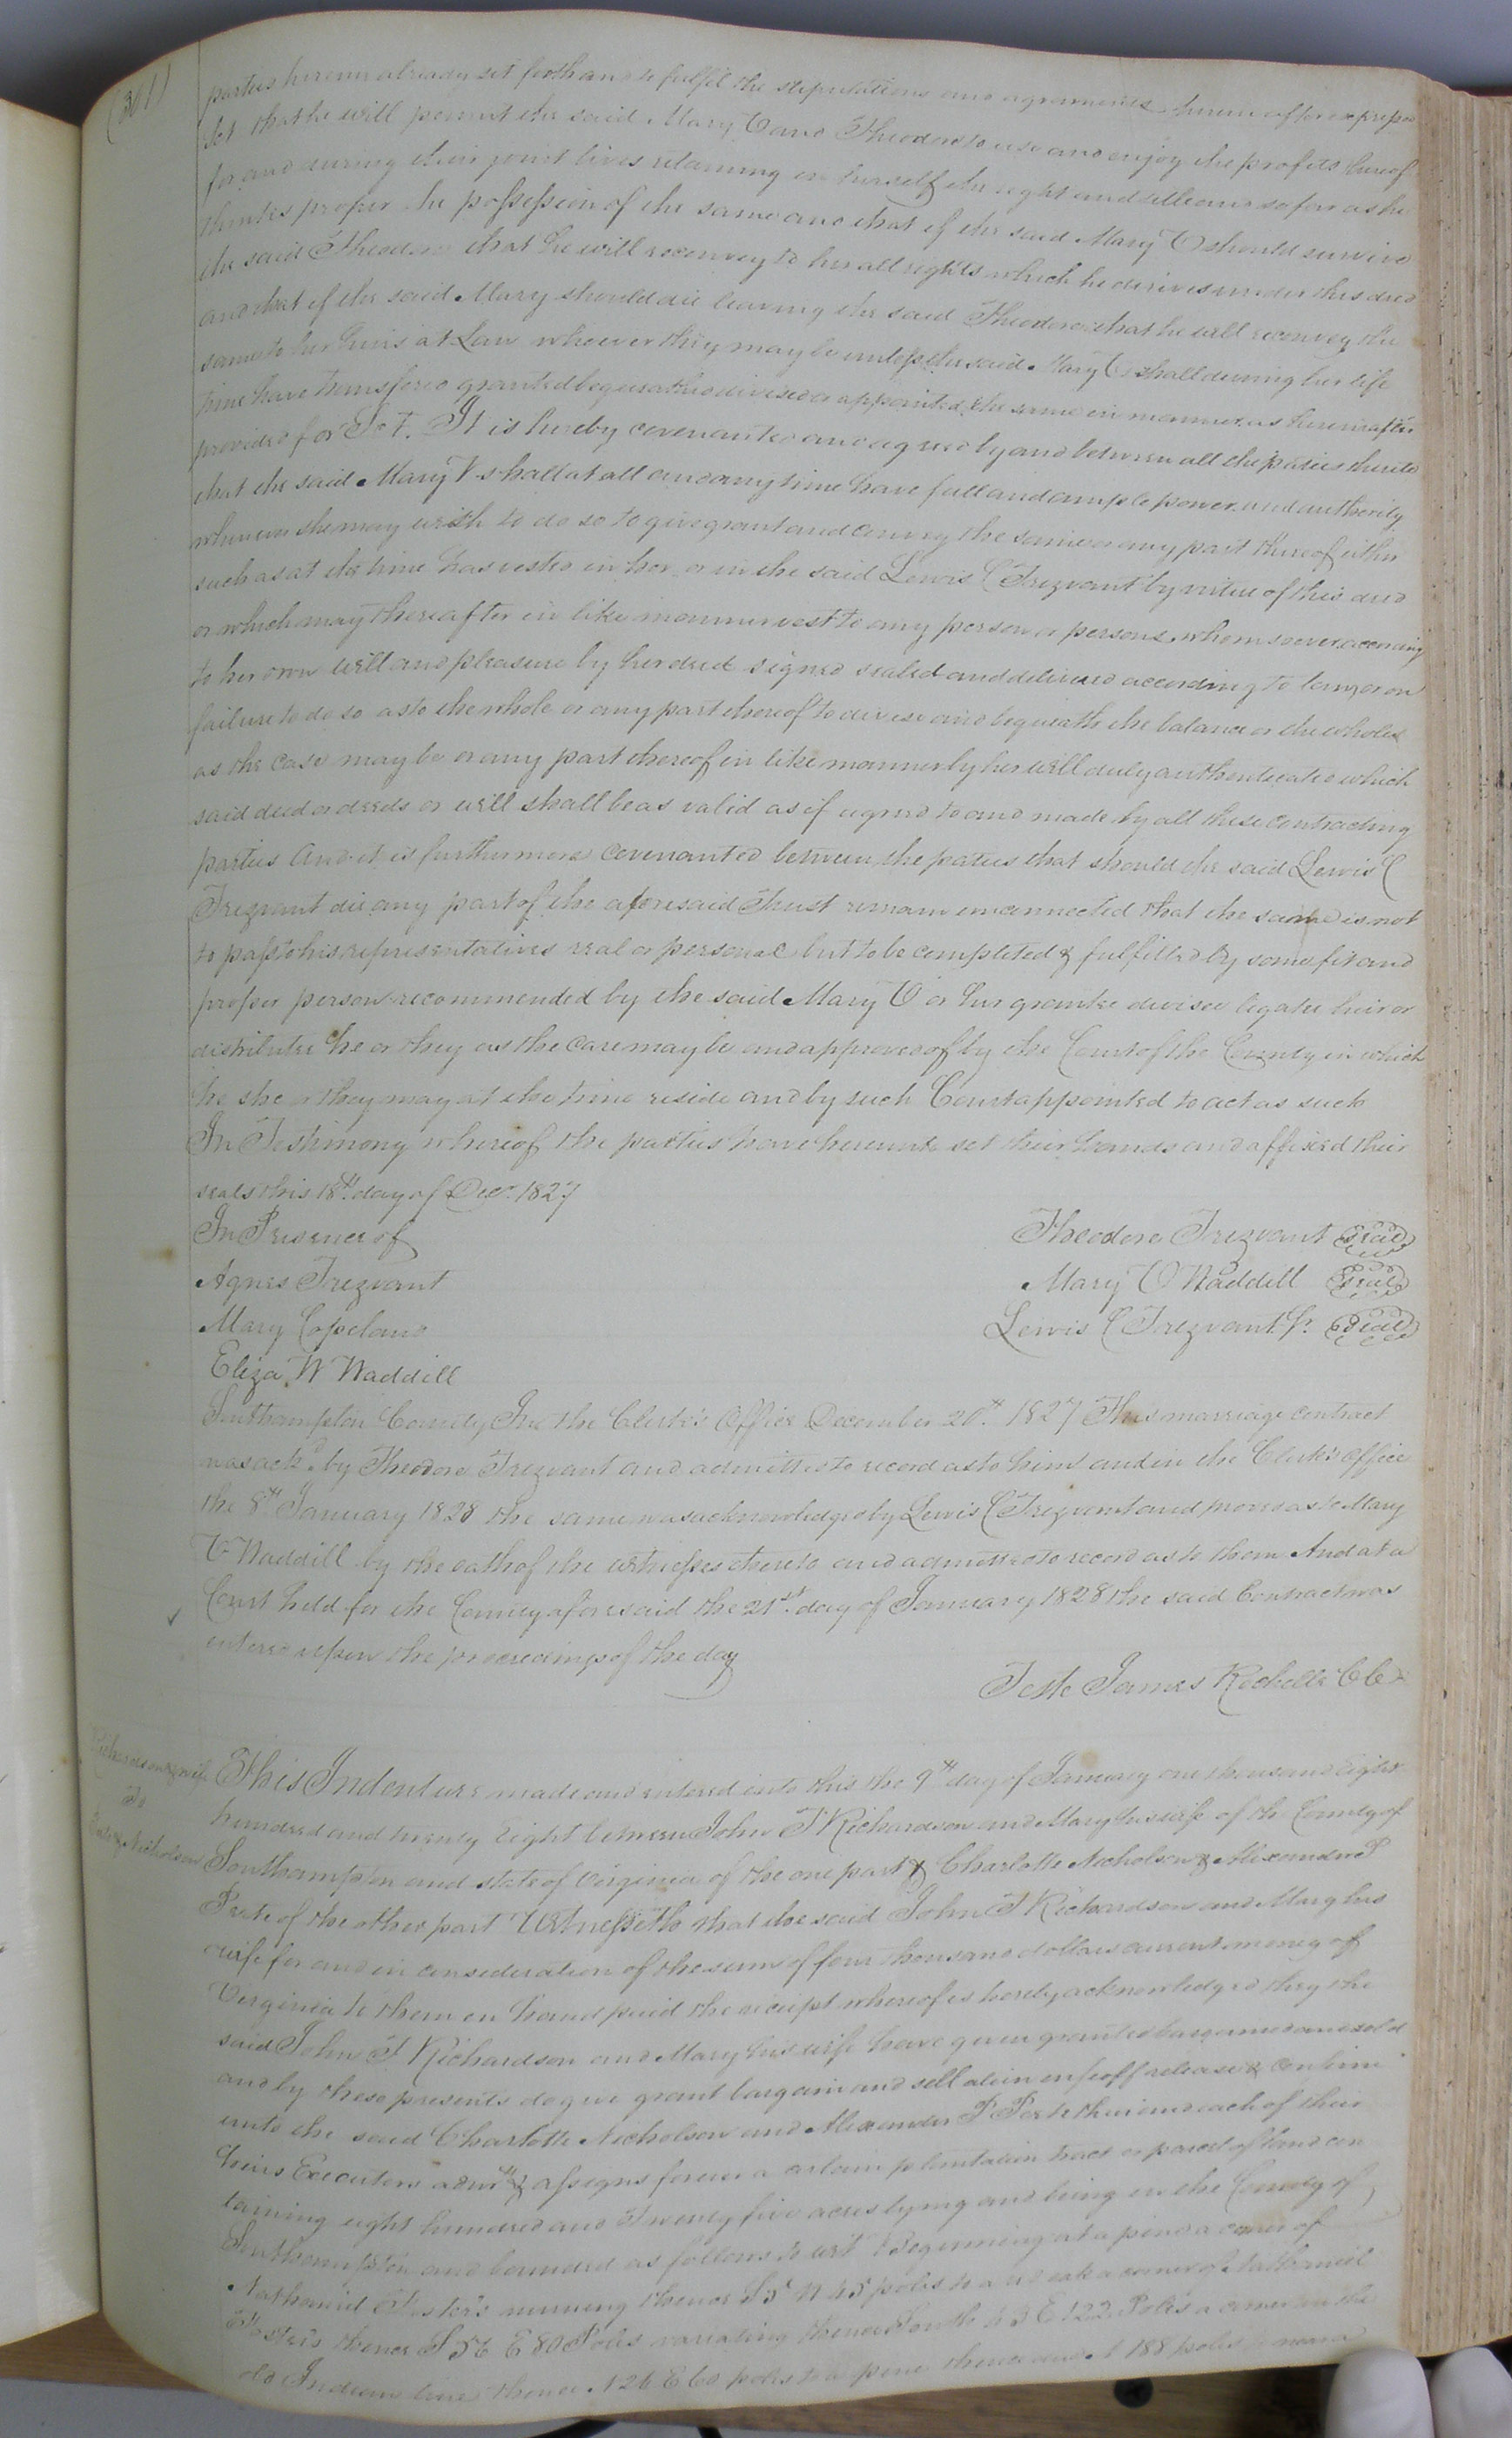 (301)
parties herein already set forth and to fulfil the stipulations and agreements herein after expressed
Set that he will permit the said Mary V and Theodore to use and enjoy the profits thereof
for and during their joint lives retaining in himself the right and title and so far as he
thinks proper the possession of the same and that if the said Mary V should survive
the said Theodore that he will reconvey to her all rights which he derives under this deed
and that if the said Mary should die leaving the said Theodore that he will reconvey the
same to her heirs at Law whoever they may be unless the said Mary V shall during her life
time have transfered granted bequeathed devised or appointed the same in manner as hereinafter
provided for It is hereby covenanted and agreed by and between all the parties thereto
that the said Mary V shall at all and any time have full and ample power and authority
whenever she may wish to do so to give grant and convey the same or any part thereof either
such as at the time has vested in her or in the said Lewis C Trezvant by virtue of this deed
or which may thereafter in like manner vest to any person or persons whomsoever according
to her own will and pleasure by her deed signed sealed and delivered according to law or on
failure to do so as to the whole or any part thereof to devise and bequeath the balance or the whole
as the case may be or any part thereof in like manner by her will duly authenticated which
said deed or deeds or will shall be as valid as if agreed to and made by all these contracting
parties And it is furthermore covenanted between the parties that should the said Lewis C
Trezvant die any part of the aforesaid Trust remain unconnected that the same is not
to pass to his representatives real or personal but to be completed & fulfilled by some fit and
proper person recommended by the said Mary V or her grantee devisee legatee heir or
distributee he or they as the case may be and approved of by the Court of the County in which
he she or they may at the time reside and by such Court appointed to act as such
In Testimony whereof the parties have hereunto set their hands and affixed their
seals this 18th day of Decr 1827
In Presence of
Theodore Trezvant Seal
Agnes Trezvant
Mary V Waddill Seal
Mary Copeland
Lewis C Trezvant Jr. Seal
Eliza W Waddill
Southampton County In the Clerk's Office December 20th 1827 This marriage contract
was ackd by Theodore Trezvant and admitted to record as to him and in the Clerk's Office
the 8th January 1828 the same was acknowledged by Lewis C Trezvant and proved as to Mary
V Waddill by the oath of the witnesses thereto and admitted to record as to them And at a
Court held for the County aforesaid the 21st day of January 1828 the said Contract was
entered upon the proceedings of the day
Teste James Rochelle CC
Richardson & wife
To
Nicholson
This Indenture made and entered into this the 9th day of January one thousand Eight
hundred and twenty Eight between John T Richardson and Mary his wife of the County of
Southampton and state of Virginia of the one part & Charlotte Nicholson & Alexander P
Peete of the other part Witnesseth that the said John T Richardson and Mary his
wife for and in consideration of the sum of four thousand dollars current money of
Virginia to them in hand paid the receipt whereof is hereby acknowledged they the
said John T Richardson and Mary his wife have given granted bargained and sold
and by these presents do give grant bargain and sell alien enfeoff release & confirm
unto the said Charlotte Nicholson and Alexander P Peete their and each of their
heirs Executors admrs & assigns forever a certain plantation tract or parcel of land con
taining eight hundred and Twenty five acres lying and being in the County of
Southampton and bounded as follows to wit Beginning at a pine a corner of
Nathaniel Foster's running thence S 5 W 45 poles to a red oak a corner of Nathaniel
Foster's thence S 56 E 80 Poles variating thence South 43 E 122 Poles a corner in the
do Indian line thence N 26 E 60 poles to a pine thence 188 poles